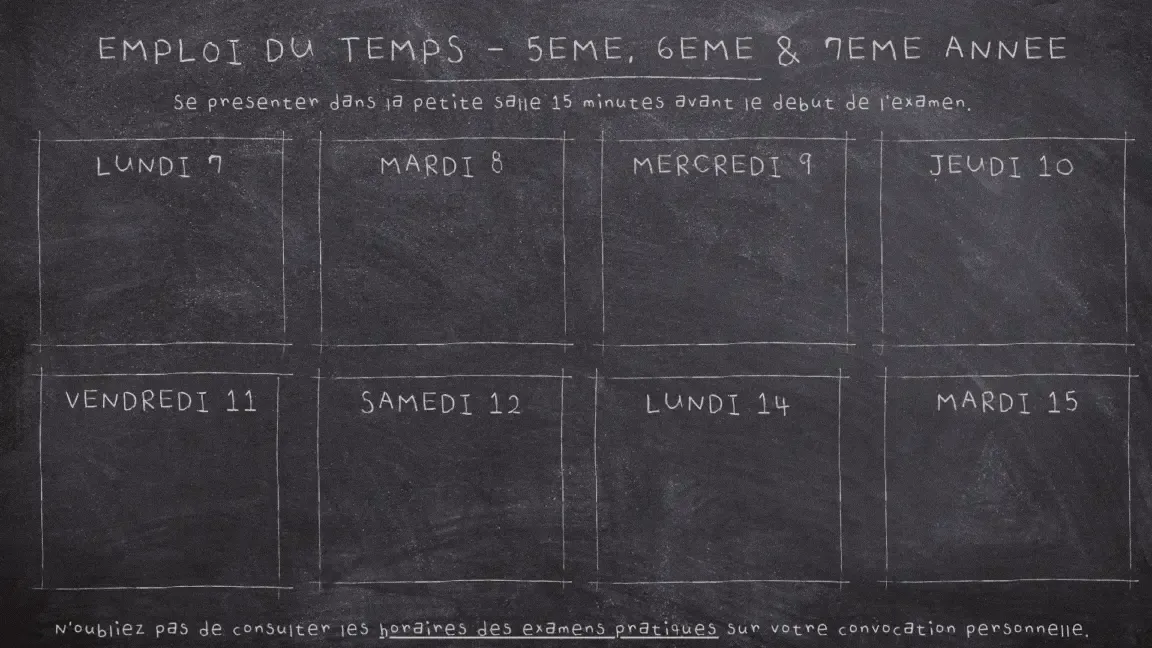 EMPLOI DU TEMPS - 5EME, 6EME & 7EME ANNEE
Se presenter dans la petite salle 15 minutes avant le debut de l'examen.
LUNDI 7
MARDI 8
MERCREDI 9
JEUDI 10
VENDREDI 11
SAMEDI 12
LUNDI 14
MARDI 15
N'oubliez pas de consulter les horaires des examens pratiques sur votre convocation personnelle.